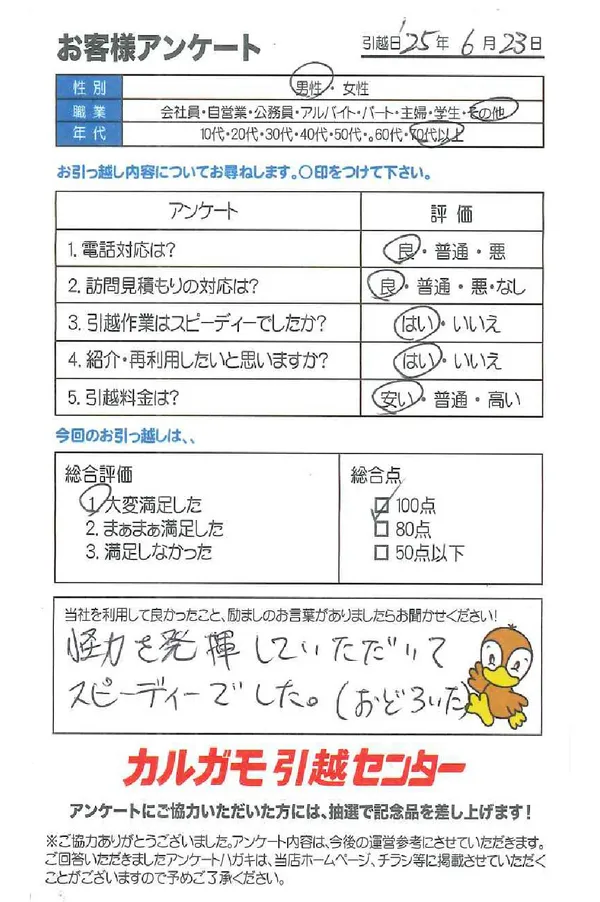 お客様アンケート
引越日'25年 6月23日
性別 男性・女性
職業 会社員・自営業・公務員・アルバイト・パート・主婦・学生・その他
年代 10代・20代・30代・40代・50代・。60代・70代以上
お引っ越し内容についてお尋ねします。〇印をつけて下さい。
アンケート 評価
1. 電話対応は? 良・普通・悪
2. 訪問見積もりの対応は? 良・普通・悪・なし
3. 引越作業はスピーディーでしたか? はい・いいえ
4. 紹介・再利用したいと思いますか? はい・いいえ
5. 引越料金は? 安い・普通・高い
今回のお引っ越しは、、
総合評価 総合点
1. 大変満足した 100点
2. まぁまぁ満足した 80点
3. 満足しなかった 50点以下
当社を利用して良かったこと、励ましのお言葉がありましたらお聞かせください!
怪力を発揮していただいて
スピーディーでした。(おどろいた)
カルガモ引越センター
アンケートにご協力いただいた方には、抽選で記念品を差し上げます!
※ご協力ありがとうございました。アンケート内容は、今後の運営参考にさせていただきます。
ご回答いただきましたアンケートハガキは、当店ホームページ、チラシ等に掲載させていただく
ことがございますので予めご了承ください。